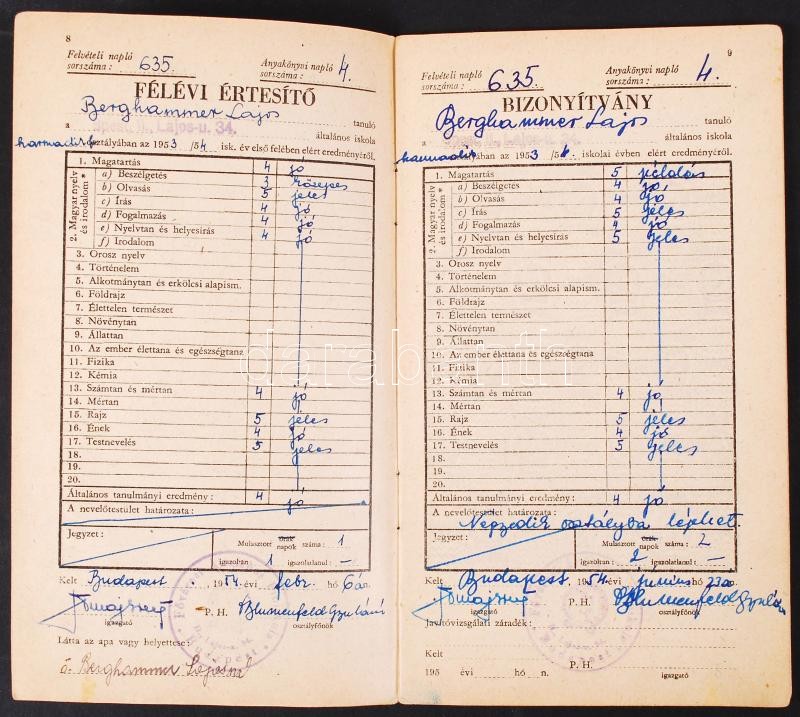 8
Felvételi napló sorszáma: 635.
Anyakönyvi napló sorszáma: 4.
FÉLÉVI ÉRTESÍTŐ
Berghammer Lajos tanuló
a Lajos-u. 34. általános iskola
harmadik osztályában az 1953/54 isk. év első felében elért eredményéről.
1. Magatartás 4 jó
2. Magyar nyelv és irodalom*
a) Beszélgetés 4 jó
b) Olvasás 3 közepes
c) Írás 5 jeles
d) Fogalmazás 4 jó
e) Nyelvtan és helyesírás 4 jó
f) Irodalom
3. Orosz nyelv
4. Történelem
5. Alkotmánytan és erkölcsi alapism.
6. Földrajz
7. Élettelen természet
8. Növénytan
9. Állattan
10. Az ember élettana és egészségtana
11. Fizika
12. Kémia
13. Számtan és mértan 4 jó
14. Mértan
15. Rajz 5 jeles
16. Ének 4 jó
17. Testnevelés 5 jeles
18.
19.
20.
Általános tanulmányi eredmény: 4 jó
A nevelőtestület határozata:
Jegyzet:
Mulasztott órák napok száma: 1
igazoltan 1 igazolatlanul —
Kelt Budapest, 1954. évi febr. hó 6 án.
igazgató
P. H.
Blumenfeld Gyuláné
osztályfőnök
Látta az apa vagy helyettese:
ö. Berghammer Lajosné
9
Felvételi napló sorszáma: 635.
Anyakönyvi napló sorszáma: 4.
BIZONYÍTVÁNY
Berghammer Lajos tanuló
a általános iskola
harmadik osztályában az 1953/54. iskolai évben elért eredményéről.
1. Magatartás 5 példás
2. Magyar nyelv és irodalom*
a) Beszélgetés 4 jó
b) Olvasás 4 jó
c) Írás 5 jeles
d) Fogalmazás 4 jó
e) Nyelvtan és helyesírás 5 jeles
f) Irodalom
3. Orosz nyelv
4. Történelem
5. Alkotmánytan és erkölcsi alapism.
6. Földrajz
7. Élettelen természet
8. Növénytan
9. Állattan
10. Az ember élettana és egészségtana
11. Fizika
12. Kémia
13. Számtan és mértan 4 jó
14. Mértan
15. Rajz 5 jeles
16. Ének 4 jó
17. Testnevelés 5 jeles
18.
19.
20.
Általános tanulmányi eredmény: 4 jó
A nevelőtestület határozata:
Negyedik osztályba léphet
Jegyzet:
Mulasztott órák napok száma: 2
igazoltan 2 igazolatlanul —
Kelt Budapest, 1954. évi június hó 23 án.
igazgató
P. H.
Blumenfeld Gyuláné
osztályfőnök
Javítóvizsgálati záradék:
Kelt
195 évi hó n.
P. H.
igazgató